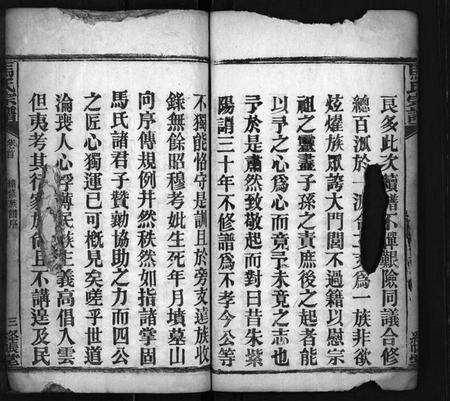 良多此次續譜不憚艱險同議合修
總百派於一合支爲一族非欲
炫燿族眾誇大門閭不過藉以慰宗
祖之靈盡子孫之責庶後之起者能
以予之心爲心而竟予未竟之志也
予於是肅然致敬起而對曰昔朱紫
陽謂三十年不修譜爲不孝今公等
不獨能恪守是訓且於旁支遠族收
錄無餘昭穆考妣生死年月墳墓山
向序傳規例井然秩然如指諸掌固
馬氏諸君子贊勷協助之力而四公
之匠心獨運已可概見矣嗟乎世道
淪喪人心浮薄民族主義高倡入雲
但夷考其行家族尚且不講遑及民
氏宗譜
卷首
三
堂